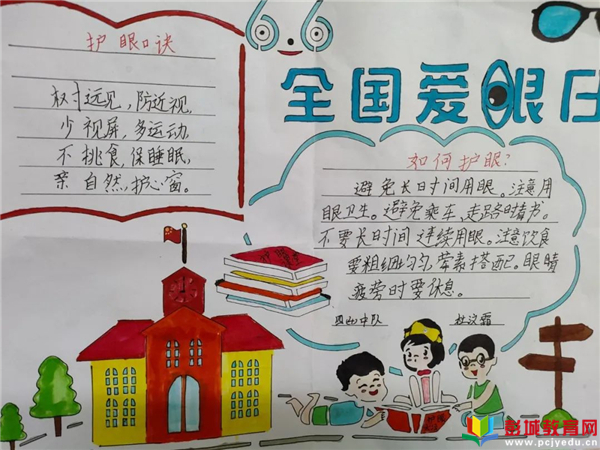 护眼口诀
权寸远见,防近视,
少视屏,多运动,
不挑食,保睡眠,
亲自然,护心窗。
6.6
全国爱眼日
如何护眼?
避免长时间用眼。注意用
眼卫生。避免乘车、走路时看书。
不要长时间连续用眼。注意饮食
要粗细匀匀,荤素搭配。眼睛
疲劳时要休息。
四山中队
彭城教育网
www.pcjyedu.cn